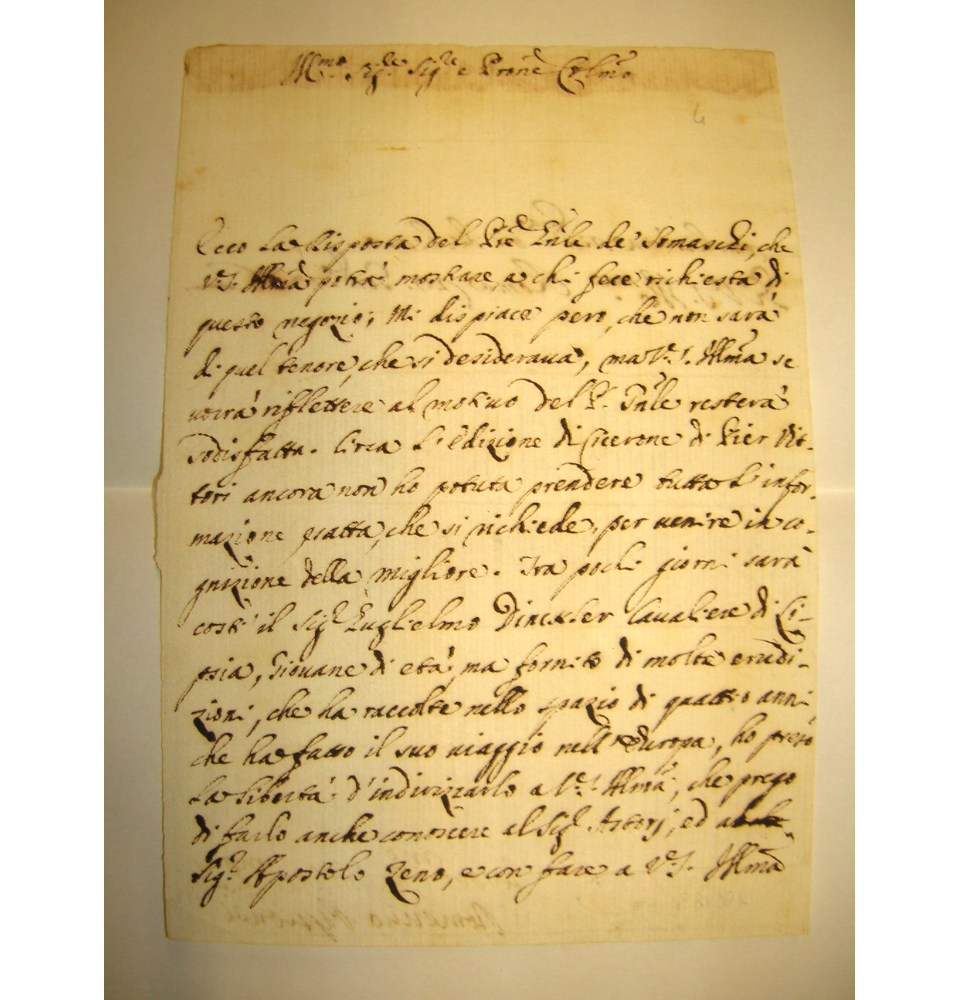 Ill.mo Sig.re Sig.re e Prone Colmo
4
Ecco la Risposta del Pre Gnle de' Somaschi, che
V.S. Illma potrà mostrare a chi fece richiesta di
questo negozio; Mi dispiace però, che non sarà
di quel tenore, che si desiderava, ma V.S. Illma se
vorrà riflettere al motivo del P. Gnle resterà
sodisfatta. Circa l'Edizione di Cicerone di Pier Vit-
tori ancora non ho potuta prendere tutta l'infor-
mazione esatta, che si richiede, per venire in co-
gnizione della migliore. Tra pochi giorni sarà
costì il Sig.r Guglielmo Cavaliere di Li-
psia, Giovane di età, ma fornito di molte erudi-
zioni, che ha raccolte nello spazio di quattro anni
che ha fatto il suo viaggio nell'Europa, ho preso
la libertà d'indirizzarlo a V.S. Illma, che prego
di farlo anche conoscere al Sig.r Astorj, ed al
Sig.r Apostolo Zeno, e con fare a V.S. Illma